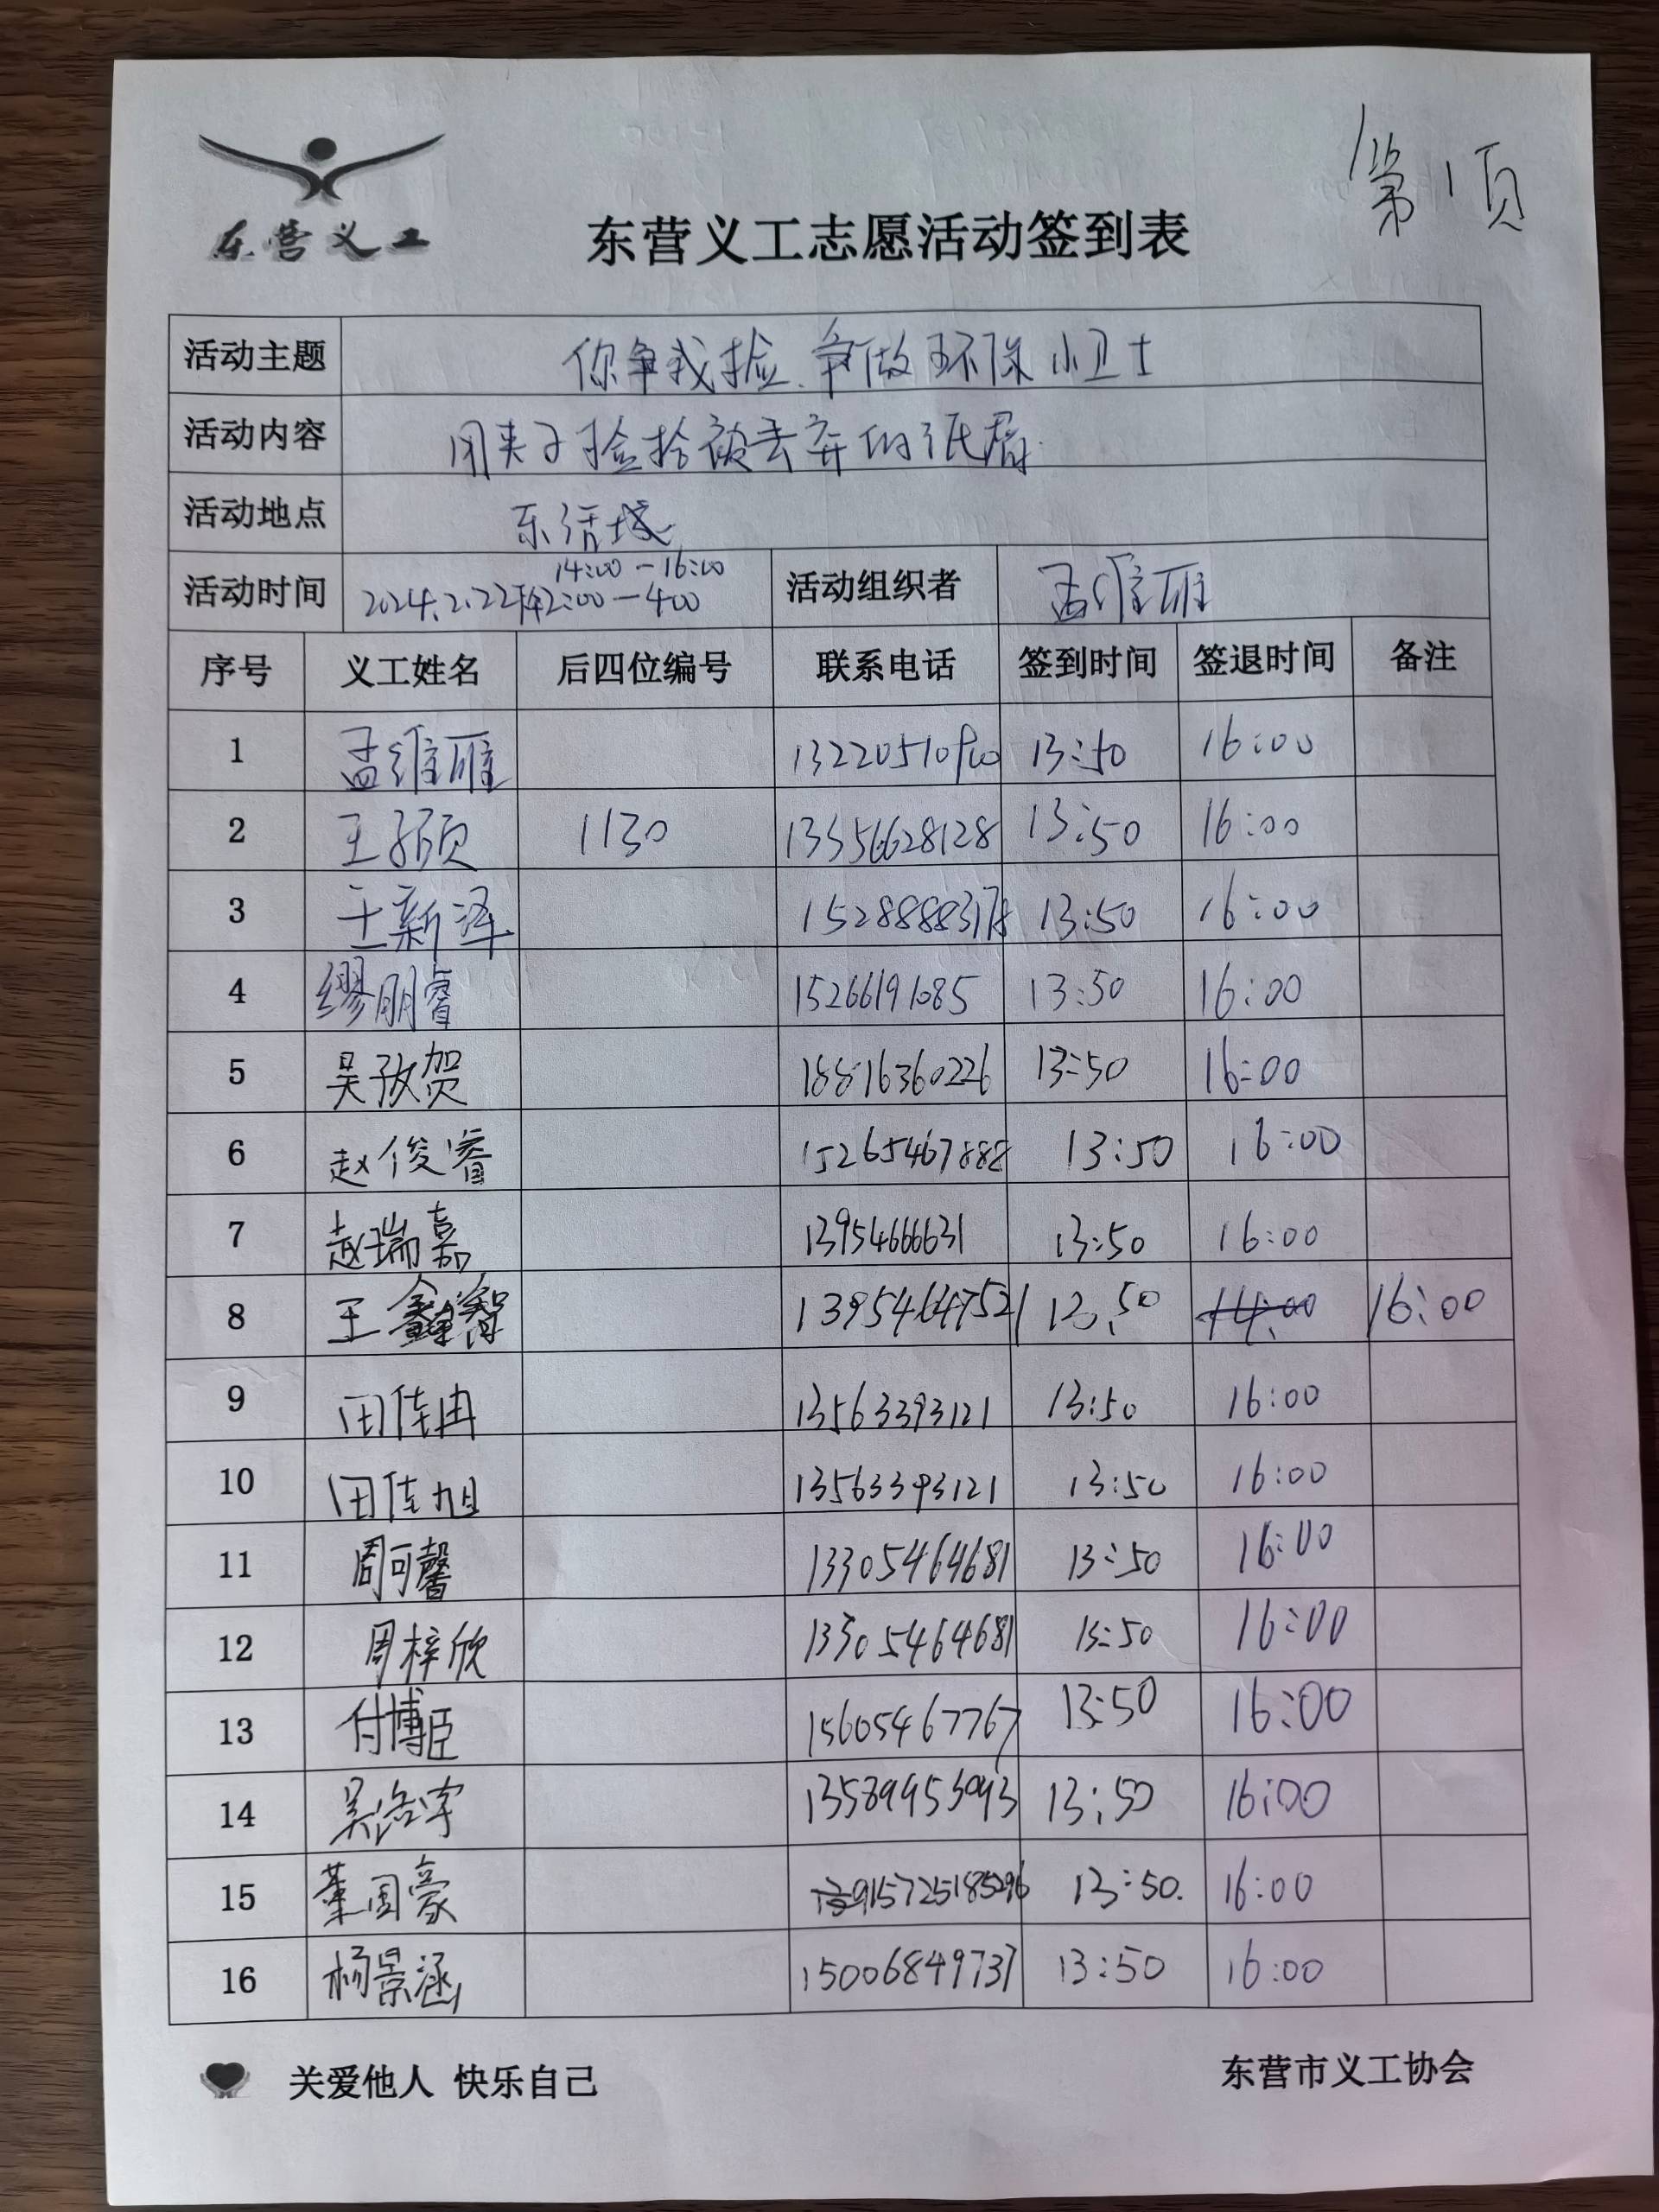 第1页
东营义工
东营义工志愿活动签到表
活动主题 你争我捡、争做环保小卫士
活动内容 用夹子捡拾被丢弃的纸屑.
活动地点 东活城
14:00-16:00
活动时间 2024.2.22 2:00-4:00 活动组织者 孟维雁
序号 义工姓名 后四位编号 联系电话 签到时间 签退时间 备注
1 孟维雁 13:50 16:00
2 王子硕 1130 13356628128 13:50 16:00
3 王新泽 15288883178 13:50 16:00
4 缪朋睿 15266191085 13:50 16:00
5 吴孜贺 18816360226 13:50 16:00
6 赵俊睿 15265467888 13:50 16:00
7 赵瑞嘉 13954666631 13:50 16:00
8 王 13954647521 13:50 14:00 16:00
9 田佳冉 13563393121 13:50 16:00
10 田佳旭 13563393121 13:50 16:00
11 周可馨 13305464681 13:50 16:00
12 周梓欣 13305464681 13:50 16:00
13 付博臣 15605467767 13:50 16:00
14 吴浩宇 13589953093 13:50 16:00
15 董国豪 15725185296 13:50. 16:00
16 杨景涵 15006849737 13:50 16:00
关爱他人 快乐自己
东营市义工协会